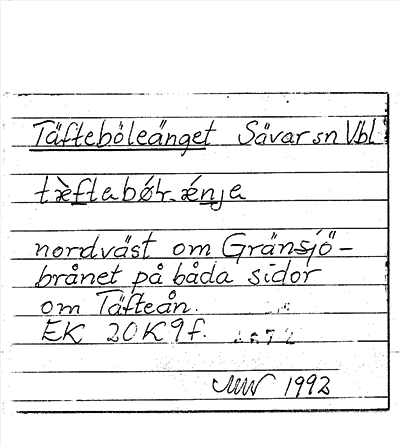 Täfteböleänget Sävar sn Vbl
tæ̀ftabǿlɩ.ǽnja
nordväst om Gränsjö-
brånet på båda sidor
om Täfteån.
EK 20K9f.
1992